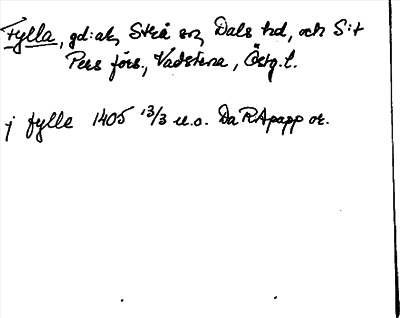 Fylla, gd: ak, Strå sn, Dals hd, och S:t
Pers förs., Vadstena, Östg. l.
j fylle 1405 13/3 u.o. Da RApapp or.